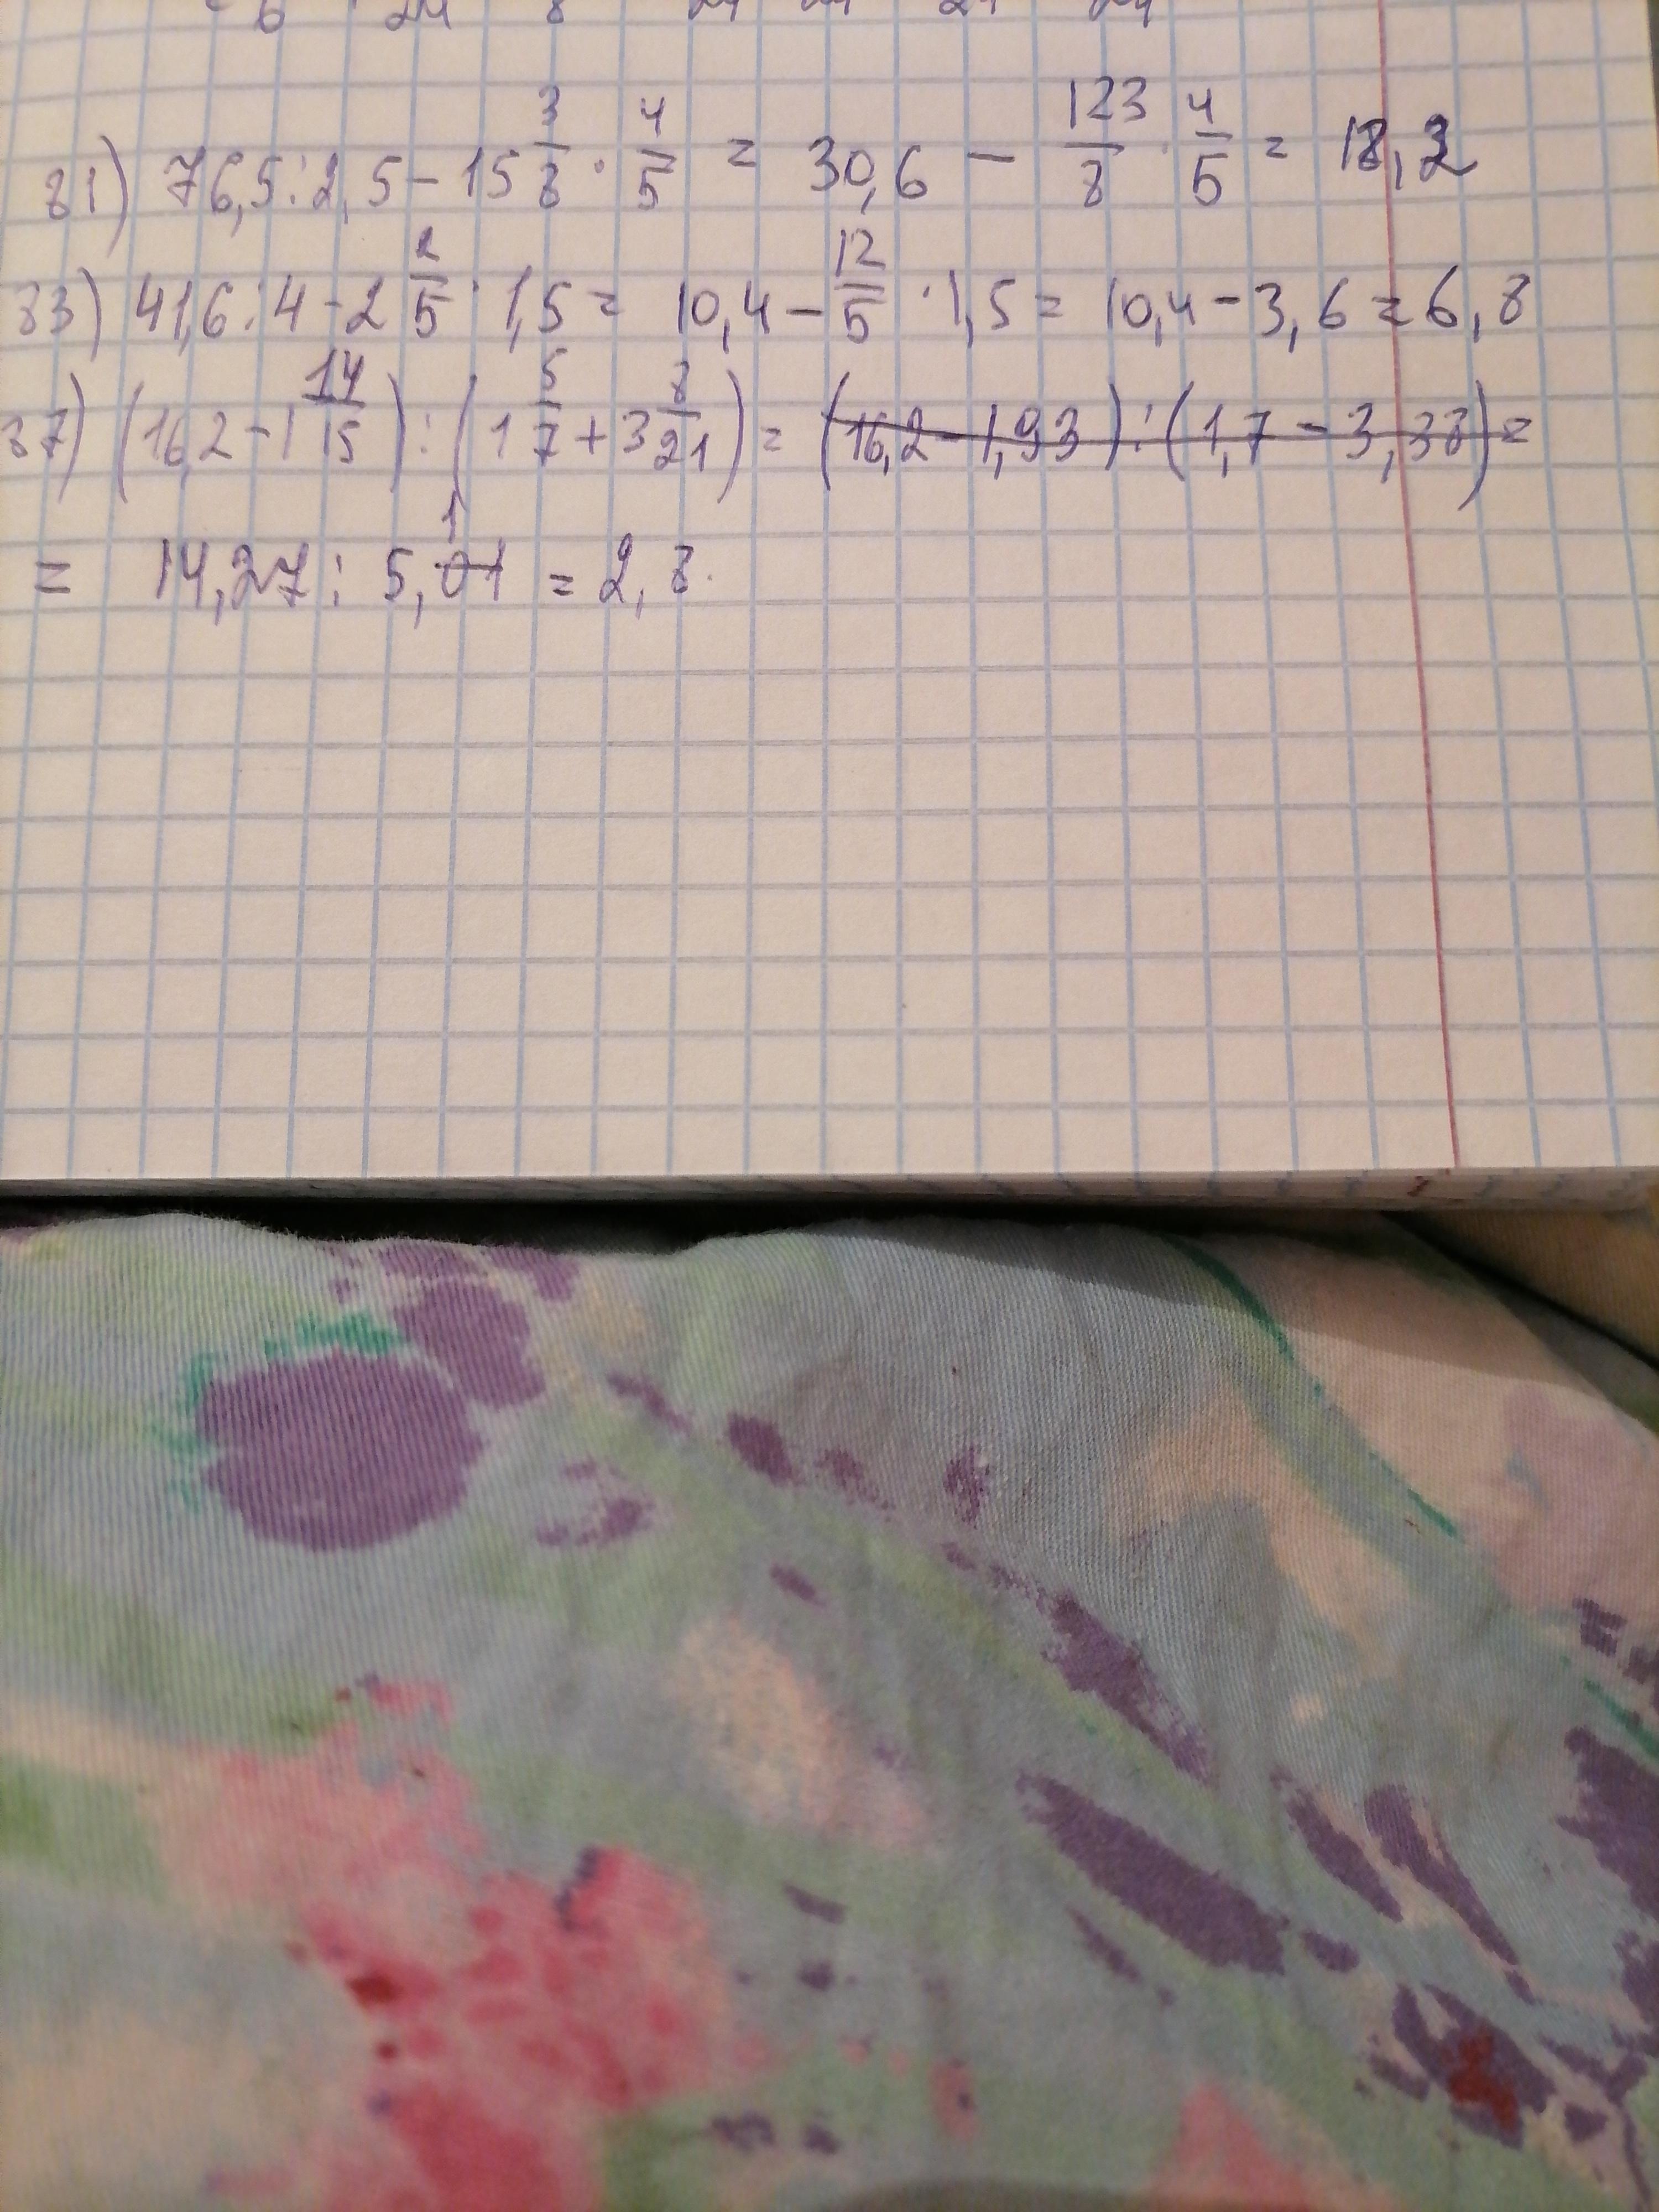 6 24 8 24 24 24 24
81) 76,5:2,5-15 3/8 · 4/5 = 30,6 - 123/8 · 4/5 = 18,2
83) 41,6:4-2 2/5 · 1,5= 10,4-12/5 · 1,5= 10,4-3,6=6,8
87) (16,2-1 14/15):(1 5/7+3 8/21)= (16,2-1,93):(1,7-3,38)=
= 14,27: 5,01 1 =2,8.